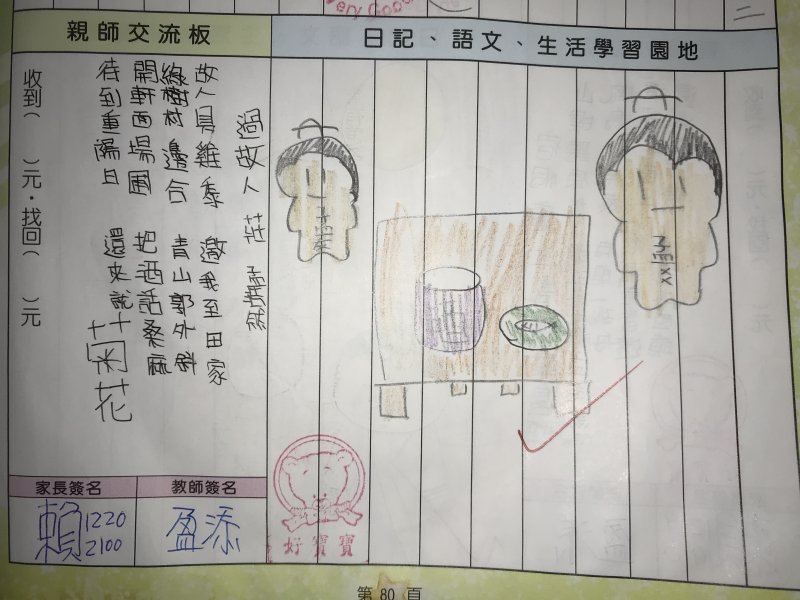 very Good
二
親師交流板
日記、語文、生活學習園地
過故人莊 孟浩然
故人具雞黍 邀我至田家
綠樹村邊合 青山郭外斜
開軒面場圃 把酒話桑麻
待到重陽日 還來就
菊花
收到( )元.找回( )元
孟
xx
家長簽名
教師簽名
賴 1220
2100
盈添
好寶寶
第 80 頁